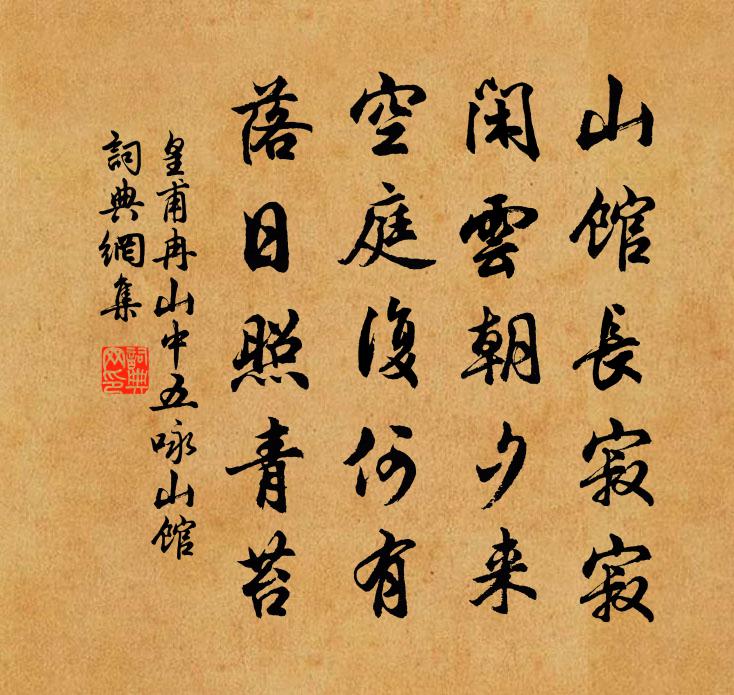 山館長寂寂
閑雲朝夕来
空庭復何有
落日照青苔
皇甫冉山中五咏山館
詞典網集
詞典網印